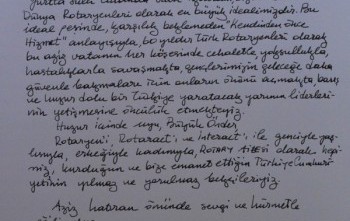 Yurtta Sulh Cihanda Sulh
Dünya Rotaryenleri olarak en büyük idealimizdir. Bu
ideal peşinde, karşılık beklemeden "Kendinden önce
Hizmet" anlayışıyla, 60 yıldır Türk Rotaryenleri olarak
bu aziz vatanın her köşesinde cehaletle, yoksullukla,
hastalıklarla savaşmakta, gençlerimizin geleceğe daha
güvenle bakmaları için onların önünü açmakta, barış
ve huzur dolu bir Türkiye yaratacak yarının liderleri-
nin yetişmesine öncülük etmekteyiz.
Huzur içinde uyu, Büyük Önder,
Rotaryen'i, Rotaract'ı ve Interact'ı ile genciyle yaş-
lısıyla, erkeğiyle kadınıyla, ROTARY ailesi olarak hepi-
miz, kurduğun ve bize emanet ettiğin Türkiye Cumhuri-
yetinin yılmaz ve yorulmaz bekçileriyiz.
Aziz hatıran önünde sevgi ve hürmetle